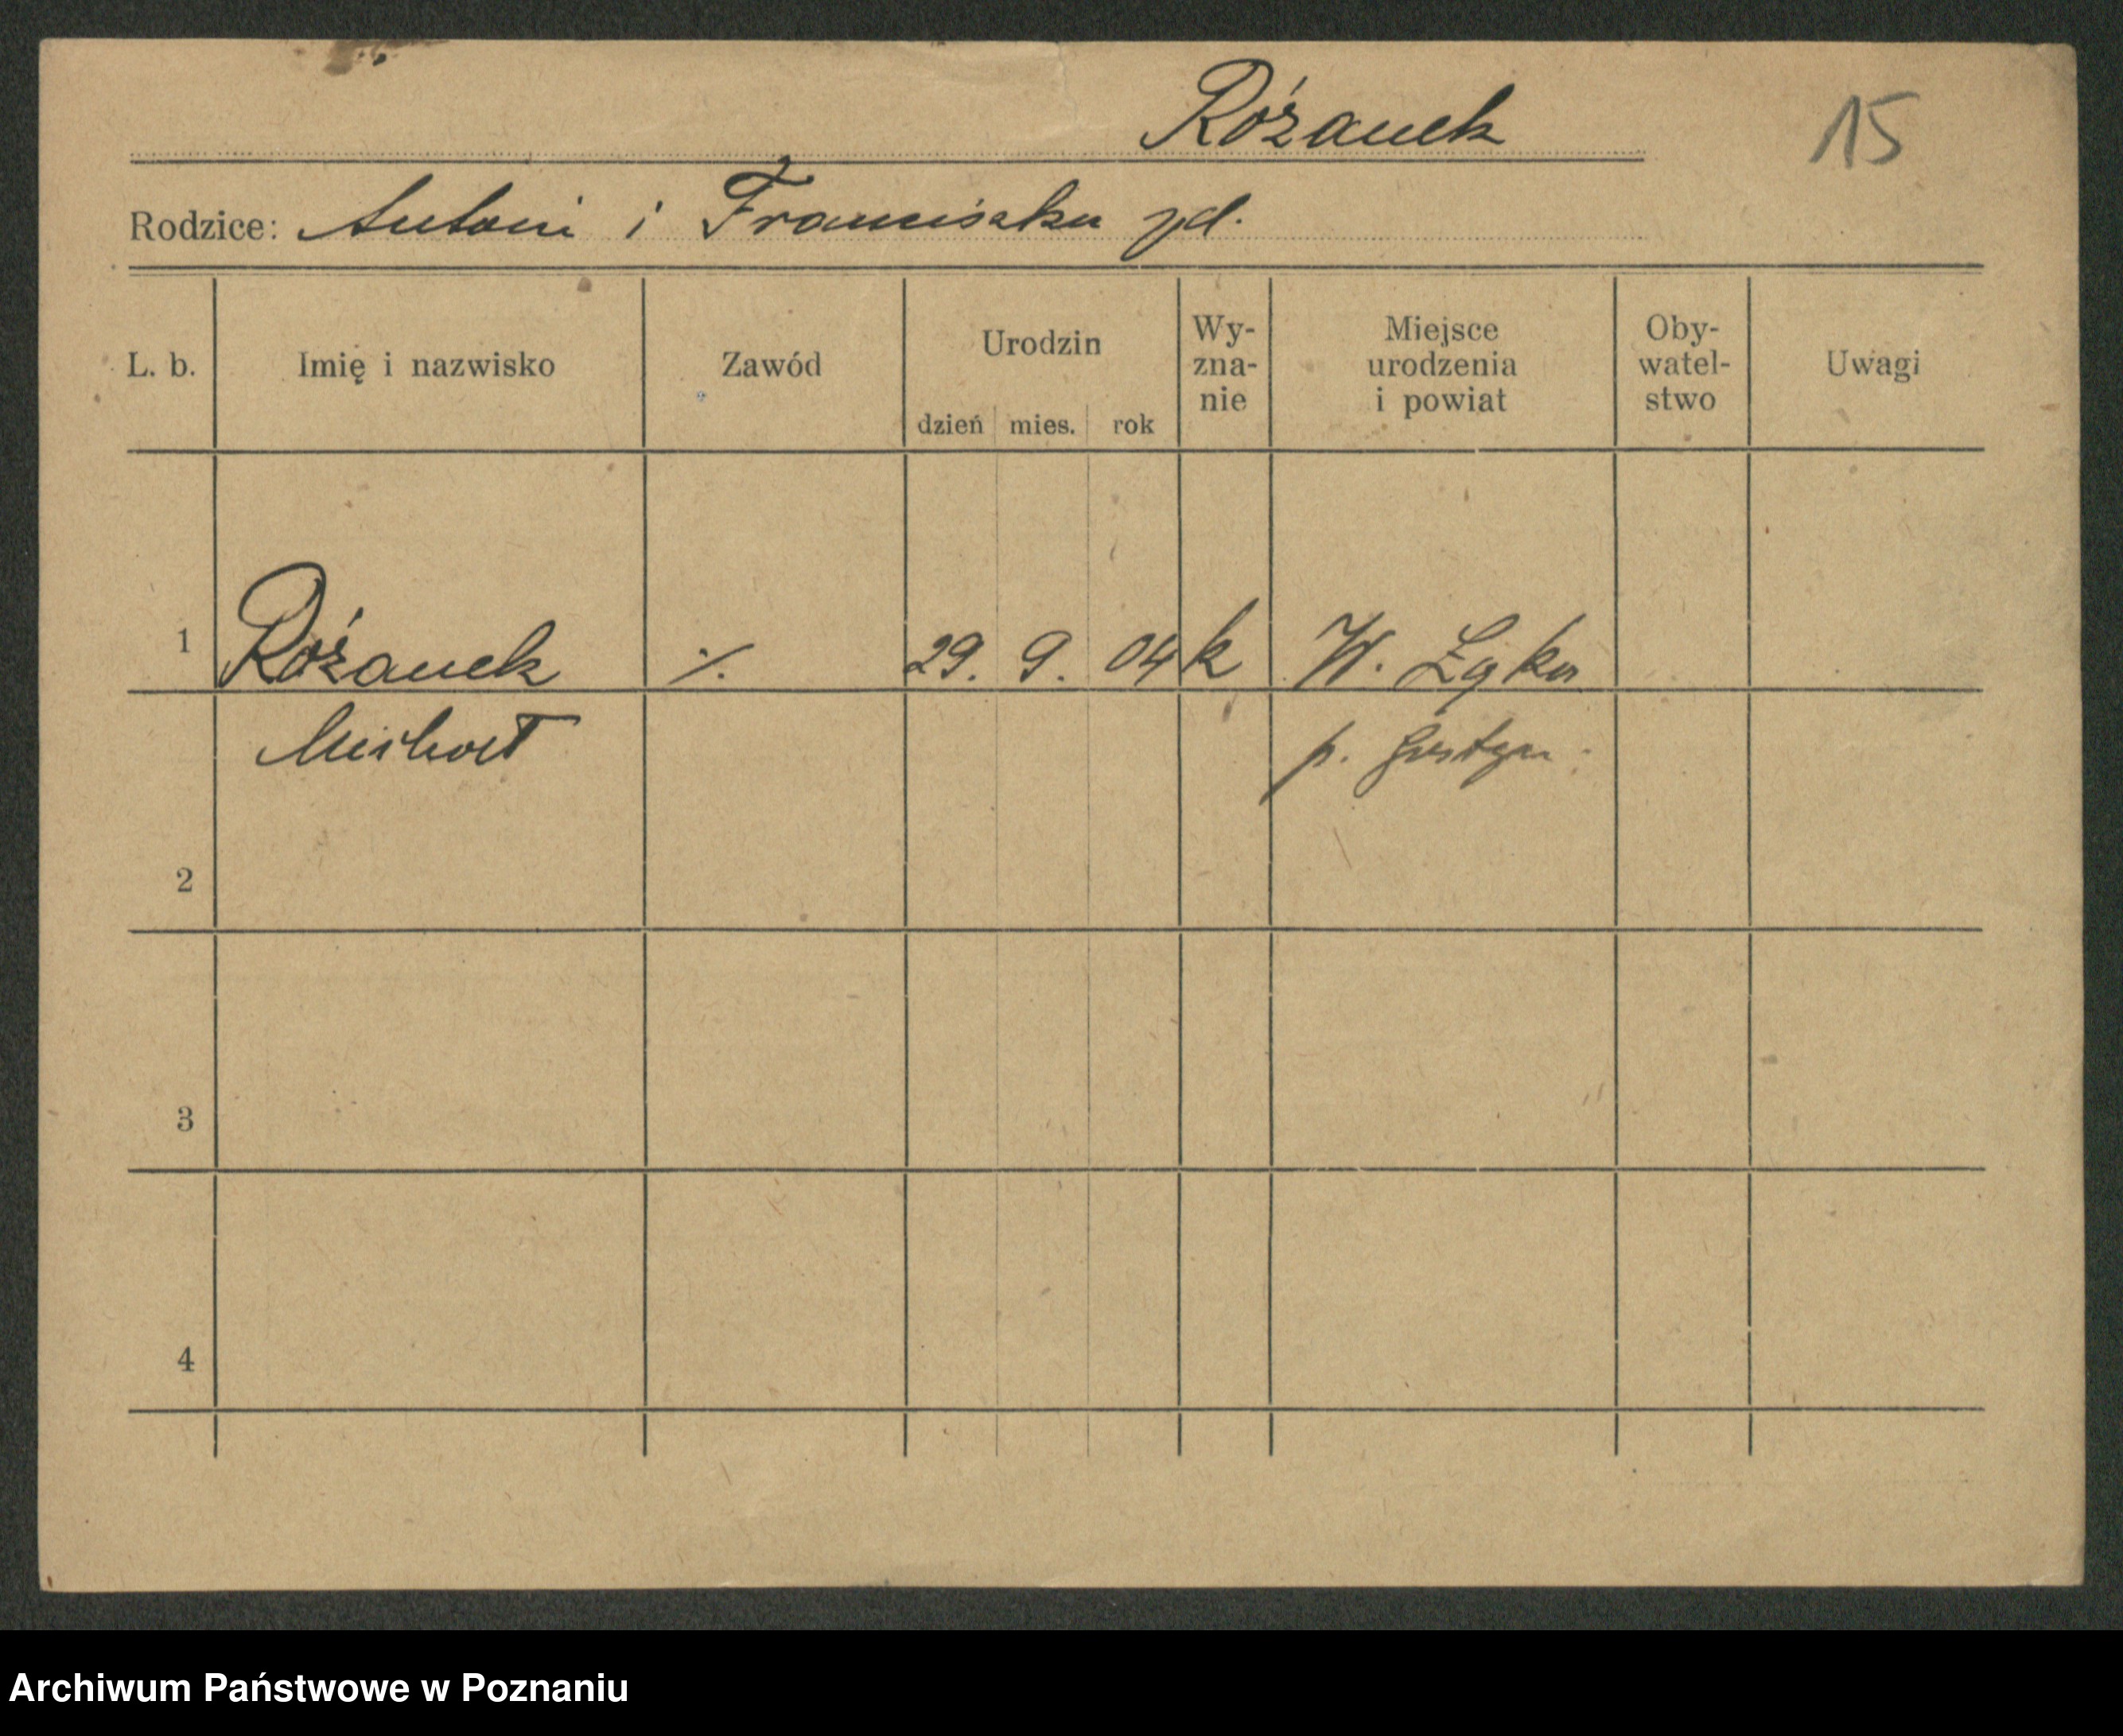 Różanek
15
Rodzice: Antoni i Franciszka zd.
L. b. Imię i nazwisko Zawód Urodzin dzień mies. rok Wy-zna-nie Miejsce urodzenia i powiat Oby-watel-stwo Uwagi
1 Różanek ./. 29. 9. 04 k W. Łąka
p. Gostyn
2
3
4
Archiwum Państwowe w Poznaniu